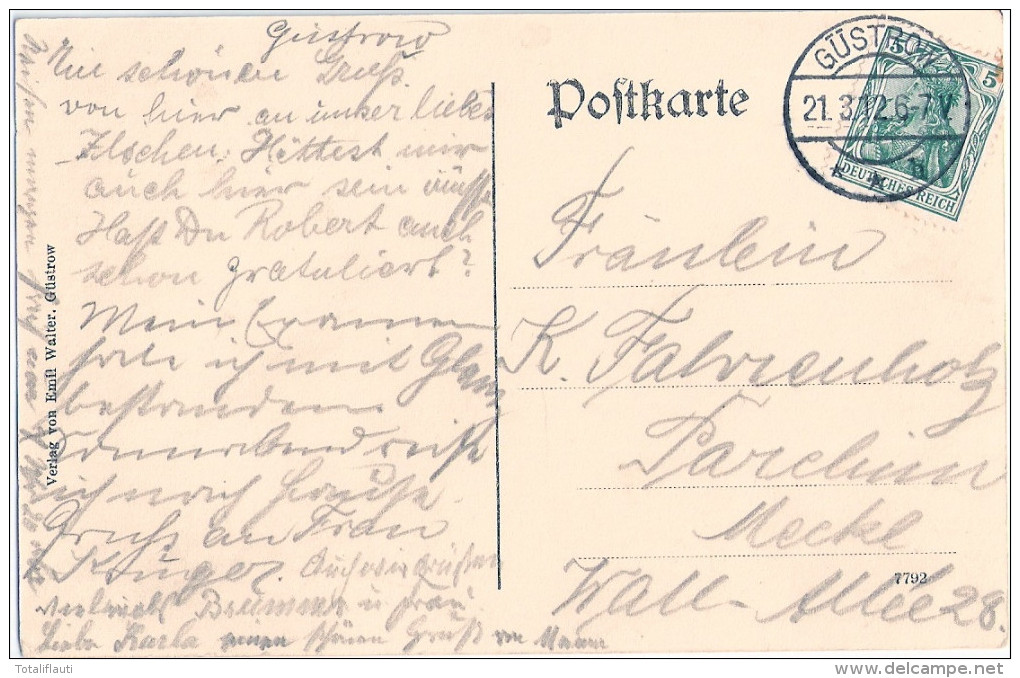 Güstrow
Einen schönen Gruß
von hier an unser liebes
Ilschen. Hättest mir
auch hier sein müssen
Haßt Du Robert auch
schon gratuliert?
Mein Examen
habe ich mit Glanz
bestanden
Sonnabend reise
ich nach Hause.
Gruss an Frau
Krüger. Auch wir grüßen
vielmals Brümmer u Frau
Liebe Karla einen schönen Gruß von
Verlag von Emil Walter, Güstrow
Postkarte
GÜSTROW
21. 3. 12. 6-7 V
5 5
DEUTSCHES REICH
Fräulein
K. Fahrenholz
Parchim
Meckl
7792
Wall-Allée 28.
Totaliflauti
delcampe.net